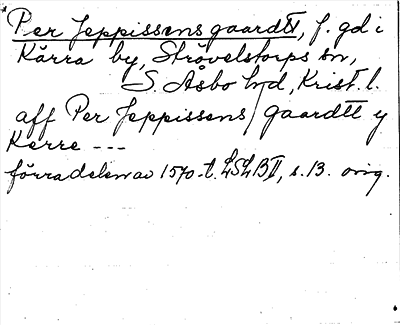 Per Jeppissens gaardtt, f. gd i
Kärra by, Strövelstorps sn,
S. Åsbo hd, Krist. l.
aff Per Jeppissens / gaardtt y
Kerre ---
förra delen av 1570-t. LSLB II, s. 13. orig.